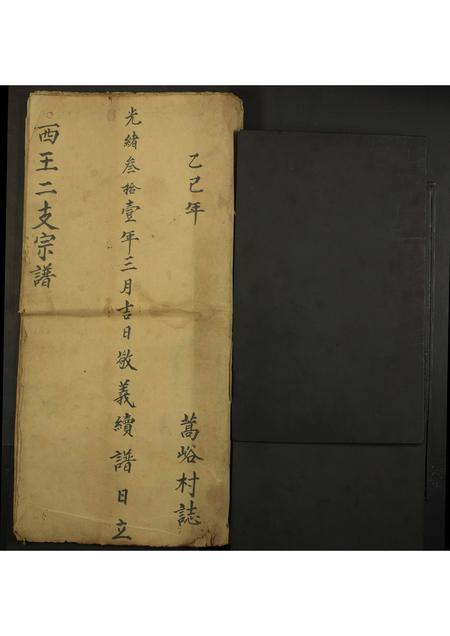 乙巳年 蒿峪村誌
光緒叁拾壹年三月吉日敬義續譜日立
西王二支宗譜